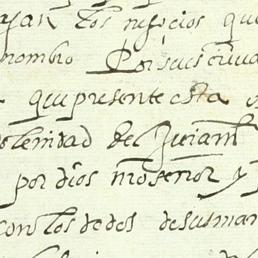 los negocios que
nombro Por sus
que presente esta
solemnidad de Juram
por dios nro señor y
con los dedos de su man